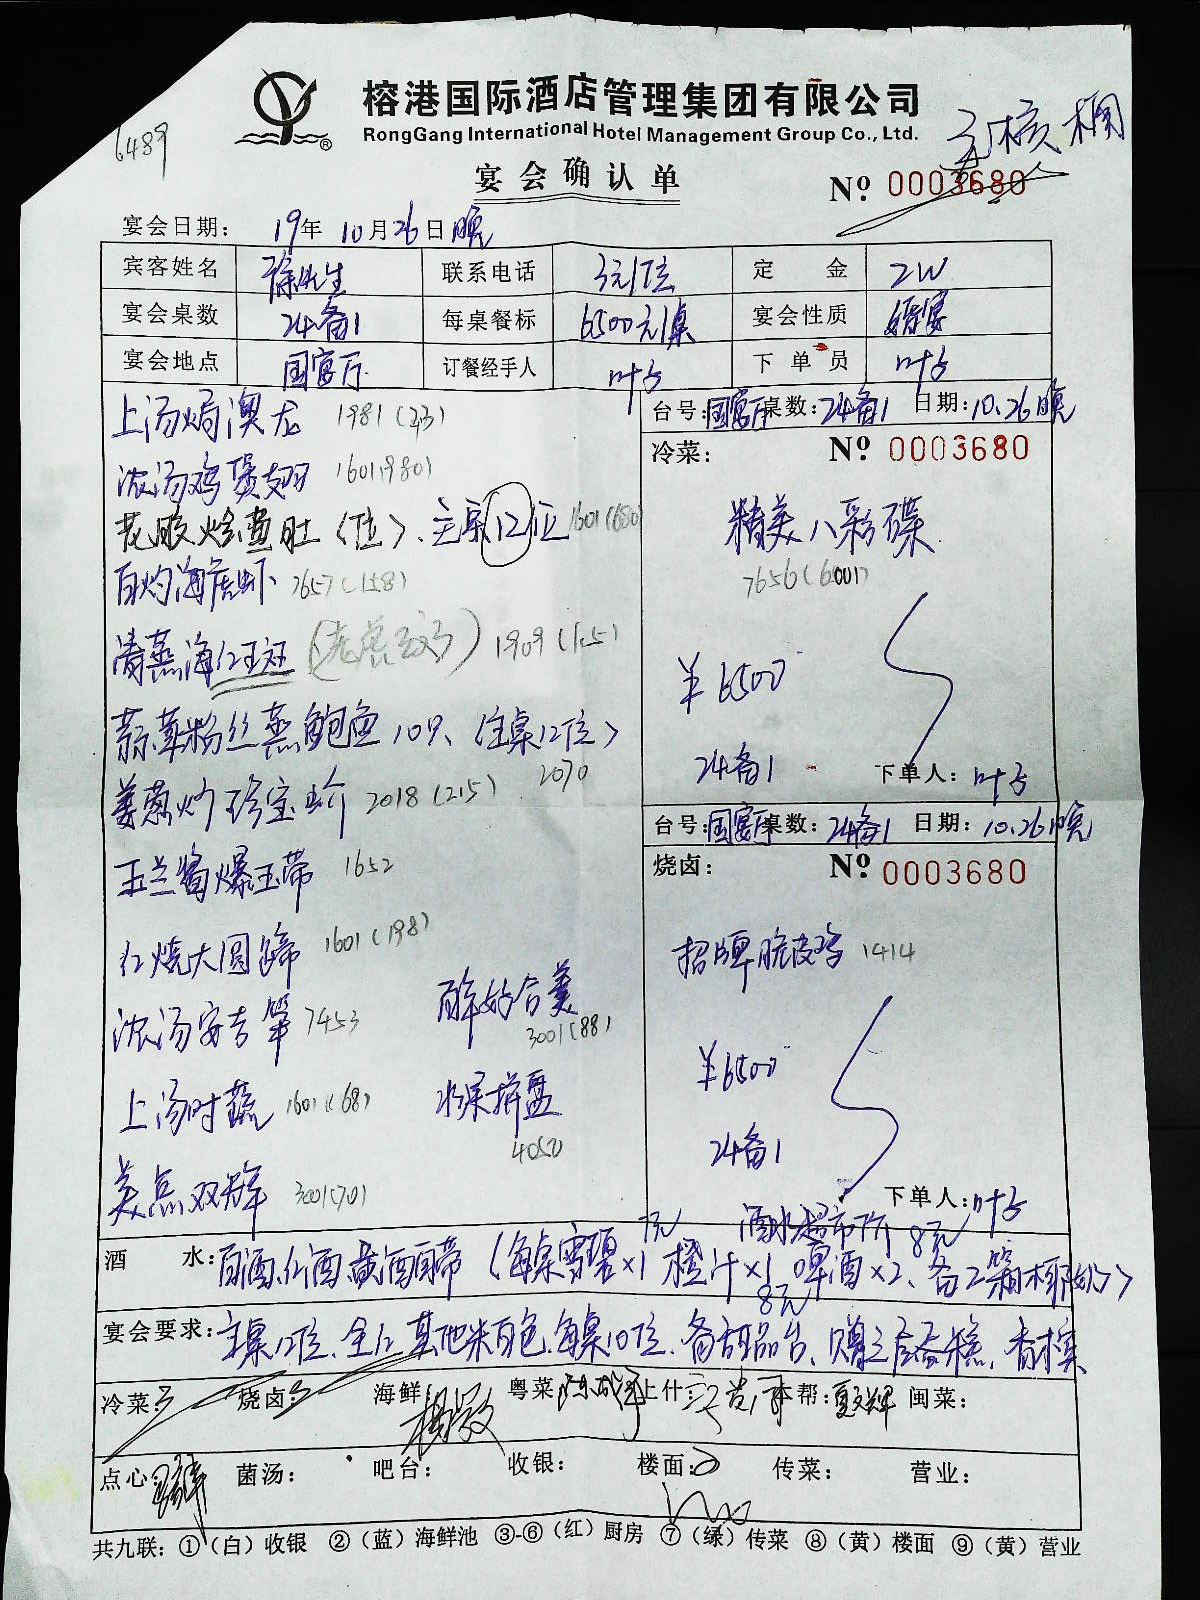 6489
榕港国际酒店管理集团有限公司
RongGang International Hotel Management Group Co., Ltd.
®
宴会确认单
Nº 0003680
宴会日期: 19年 10月26日晚
宾客姓名 徐先生 联系电话 3元/位 定金 2W
宴会桌数 24备1 每桌餐标 6500元/桌 宴会性质 婚宴
宴会地点 国宴厅 订餐经手人 叶子 下单员 叶子
上汤焗澳龙 1981(23)
浓汤鸡煲翅 1601(980)
花胶烩鱼肚(位)、主桌12位 1601(680)
白灼海虾 7657(158)
清蒸海红斑 1909
蒜蓉粉丝蒸鲍鱼10只、(主桌12位)
姜葱炒珍宝蟹 2018(215) 2070
玉兰酱爆玉带 1652
红烧大圆蹄 1601(198)
浓汤安吉笋 7453
百年好合羹 3001(88)
上汤时蔬 1601(68)
水果拼盘 4050
美点双辉 3001(70)
台号:国宴厅 桌数:24备1 日期:10.26晚
冷菜: Nº 0003680
精美八彩碟
7656(6001)
¥6500
24备1 下单人:叶子
台号:国宴厅 桌数:24备1 日期:10.26晚
烧卤: Nº 0003680
招牌脆皮鸡 1414
¥6500
24备1
下单人:叶子
酒水超市 8元
酒水:白酒.红酒.黄酒自带(每桌雪碧×1 橙汁×1 啤酒×2、备2箱椰奶)
8元
宴会要求:主桌12位、全红其他米白色.每桌10位、备甜品台、赠三层蛋糕、香槟
冷菜: 烧卤: 海鲜: 粤菜: 上什: 本帮:夏文辉 闽菜:
点心: 菌汤: 吧台: 收银: 楼面: 传菜: 营业:
共九联:①(白)收银 ②(蓝)海鲜池 ③-⑥(红)厨房 ⑦(绿)传菜 ⑧(黄)楼面 ⑨(黄)营业